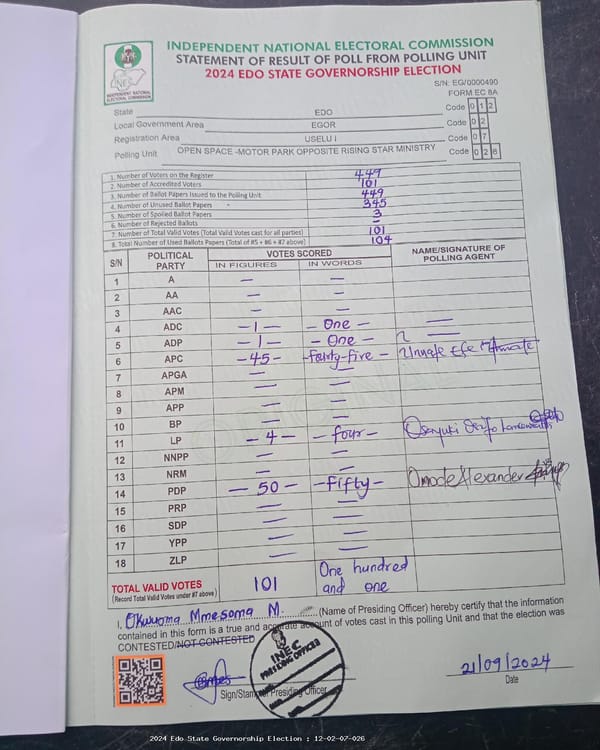 INDEPENDENT NATIONAL ELECTORAL COMMISSION
STATEMENT OF RESULT OF POLL FROM POLLING UNIT
2024 EDO STATE GOVERNORSHIP ELECTION
INEC
INDEPENDENT NATIONAL ELECTORAL COMMISSION
S/N: EG/0000490
FORM EC 8A
State EDO Code 0 1 2
Local Government Area EGOR Code 0 2
Registration Area USELU I Code 0 7
Polling Unit OPEN SPACE -MOTOR PARK OPPOSITE RISING STAR MINISTRY Code 0 2 6
1. Number of Voters on the Register 449
2. Number of Accredited Voters 101
3. Number of Ballot Papers Issued to the Polling Unit 449
4. Number of Unused Ballot Papers 345
5. Number of Spoiled Ballot Papers 3
6. Number of Rejected Ballots –
7. Number of Total Valid Votes (Total Valid Votes cast for all parties) 101
8. Total Number of Used Ballots Papers (Total of #5 + #6 + #7 above) 104
S/N POLITICAL PARTY VOTES SCORED NAME/SIGNATURE OF POLLING AGENT
IN FIGURES IN WORDS
1 A — —
2 AA — —
3 AAC — —
4 ADC -1- - One -
5 ADP -1- - One -
6 APC -45- -fourty-five -
7 APGA — —
8 APM — —
9 APP — —
10 BP — —
11 LP -4- -four-
12 NNPP — —
13 NRM — —
14 PDP -50- -Fifty- Omode Alexander
15 PRP — —
16 SDP — —
17 YPP — —
18 ZLP — —
TOTAL VALID VOTES 101 One hundred and one
(Record Total Valid Votes under #7 above)
I, Okwuoma Mmesoma M. (Name of Presiding Officer) hereby certify that the information
contained in this form is a true and accurate account of votes cast in this polling Unit and that the election was
CONTESTED/NOT CONTESTED
INEC
PRESIDING OFFICER
21/09/2024
Sign/Stamp Presiding Officer Date
2024 Edo State Governorship Election : 12-02-07-026